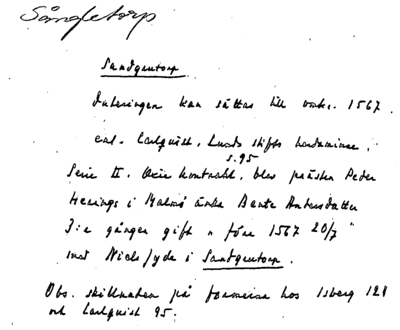 Sångletorp
Sandgentorp
Dateringen kan sättas till omkr. 1567
enl. Carlquist, Lunds stifts herdaminne,
s. 95
Serie II. Oxie kontrakt, blev prästen Peder
Herings i Malmö änka Bente Andersdatter
3:e gången gift "före 1567 20/7"
med Niels Jyde i Sandgentorp.
Obs. skillnaden på formerna hos Isberg 121
och Carlquist 95.